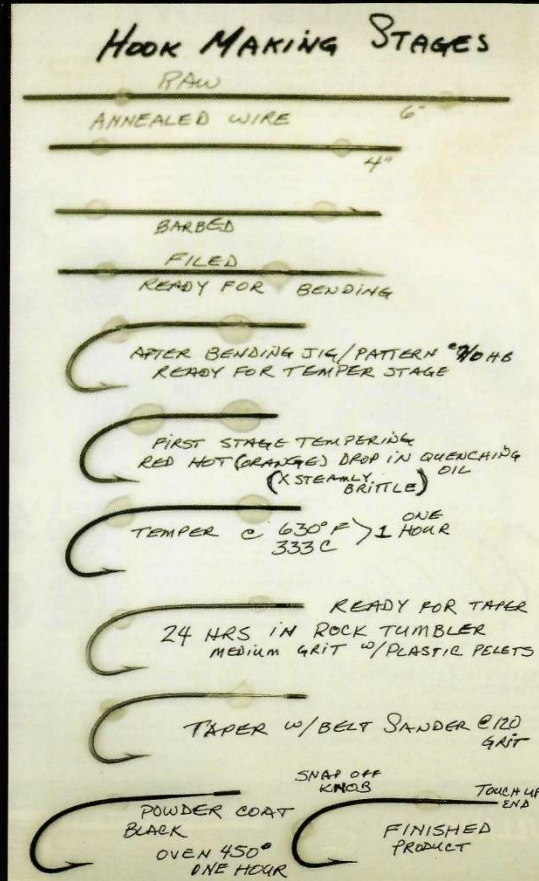 HOOK MAKING STAGES
RAW
6"
ANNEALED WIRE
4"
BARBED
FILED
READY FOR BENDING
AFTER BENDING JIG/PATTERN HB
READY FOR TEMPER STAGE
FIRST STAGE TEMPERING
RED HOT (ORANGE) DROP IN QUENCHING
OIL
BRITTLE)
TEMPER @ 630°F > 1 ONE
333C HOUR
READY FOR TAPER
24 HRS IN ROCK TUMBLER
MEDIUM GRIT W/PLASTIC PELETS
TAPER W/BELT SANDER @120
GRIT
SNAP OFF
KNOB
TOUCH UP
END
POWDER COAT
BLACK
OVEN 450°
ONE HOUR
FINISHED
PRODUCT